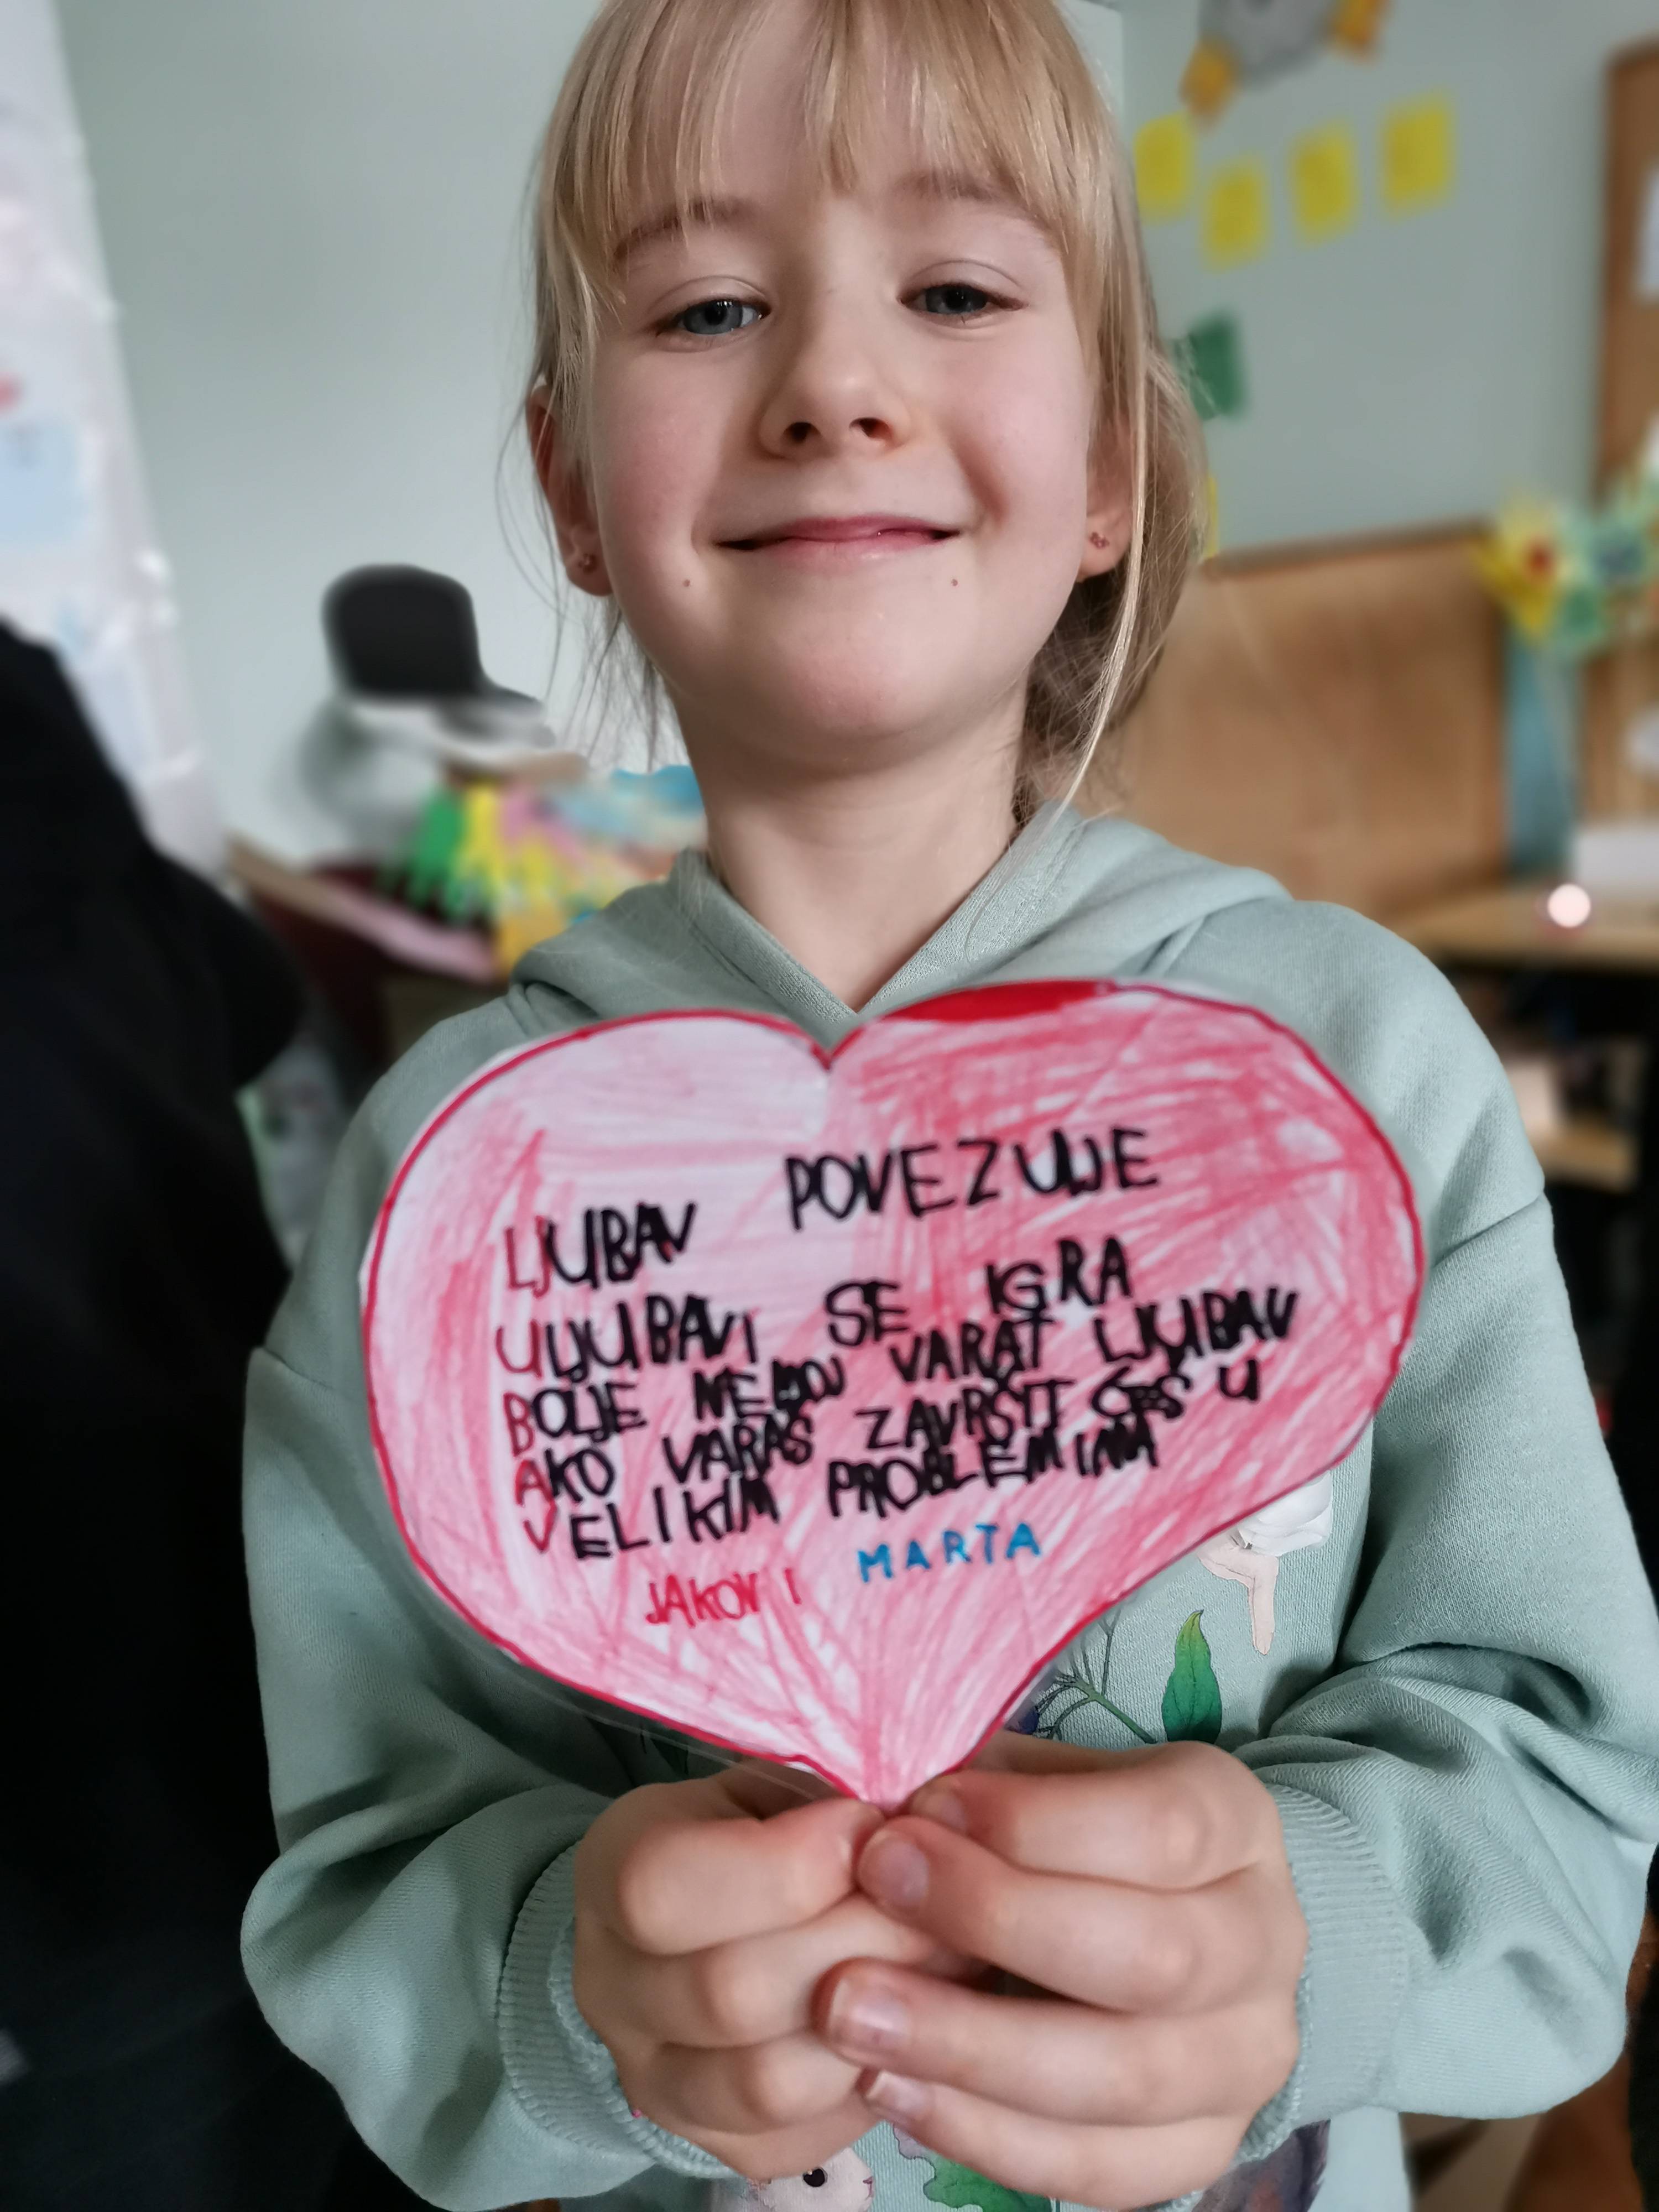 LJUBAV POVEZUJE
U LJUBAVI SE IGRA
BOLJE NEMOJ VARAT LJUBAV
AKO VARAŠ ZAVRŠIT ĆEŠ U
VELIKIM PROBLEMIMA
JAKOV I MARTA